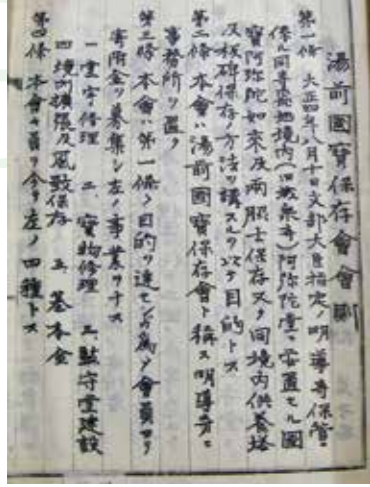 湯前國寳保存會會則
第一條 大正四年八月十日文部大臣指定ノ明導寺保管ニ
係ル同寺飛地境内(旧城泉寺)阿弥陀堂ニ安置セル國
寳阿弥陀如来及両脇士保存又ハ同境内供養塔
及板碑保存ノ方法ヲ講スルヲ以テ目的トス
第二條 本會ハ湯前國寳保存會ト稱ス明導寺ニ
事務所ヲ置ク
第三條 本會ハ第一條ノ目的ヲ達センカ為メ會員ヨリ
寄附金ヲ募集シ左ノ事業ヲナス
一 堂宇修理 二 寳物修理 三 監守堂建設
四 境内擴張及風致保存 五 基本金
第四條 本會々員ヲ分チ左ノ四種トス